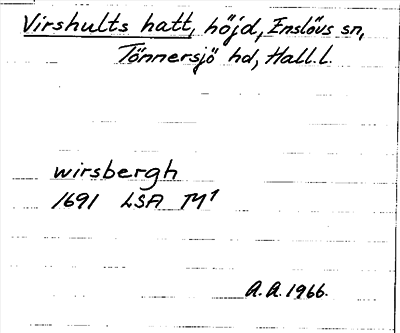 Virshults hatt, höjd, Enslövs sn,
Tönnersjö hd, Hall.l.
wirsbergh
1691 LSA M1
A.A. 1966.